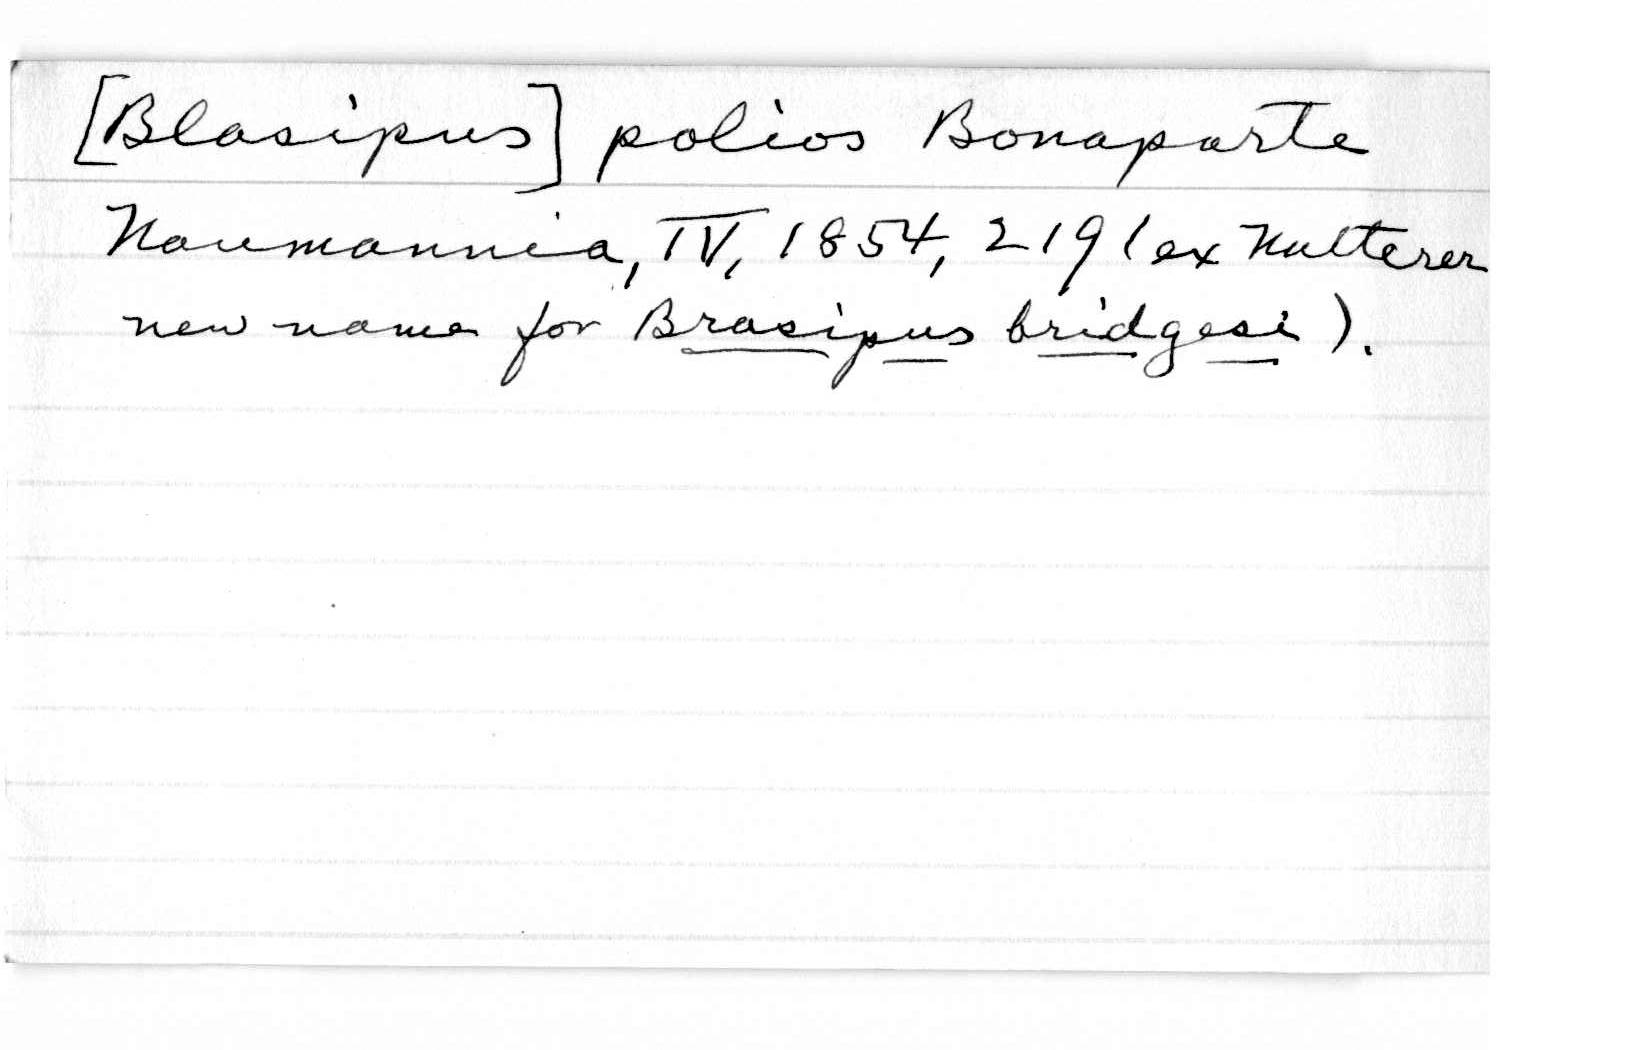 [Blasipus] polios Bonaparte
Naumannia, IV, 1854, 219 (ex Natterer
new name for Brasipus bridgesi).